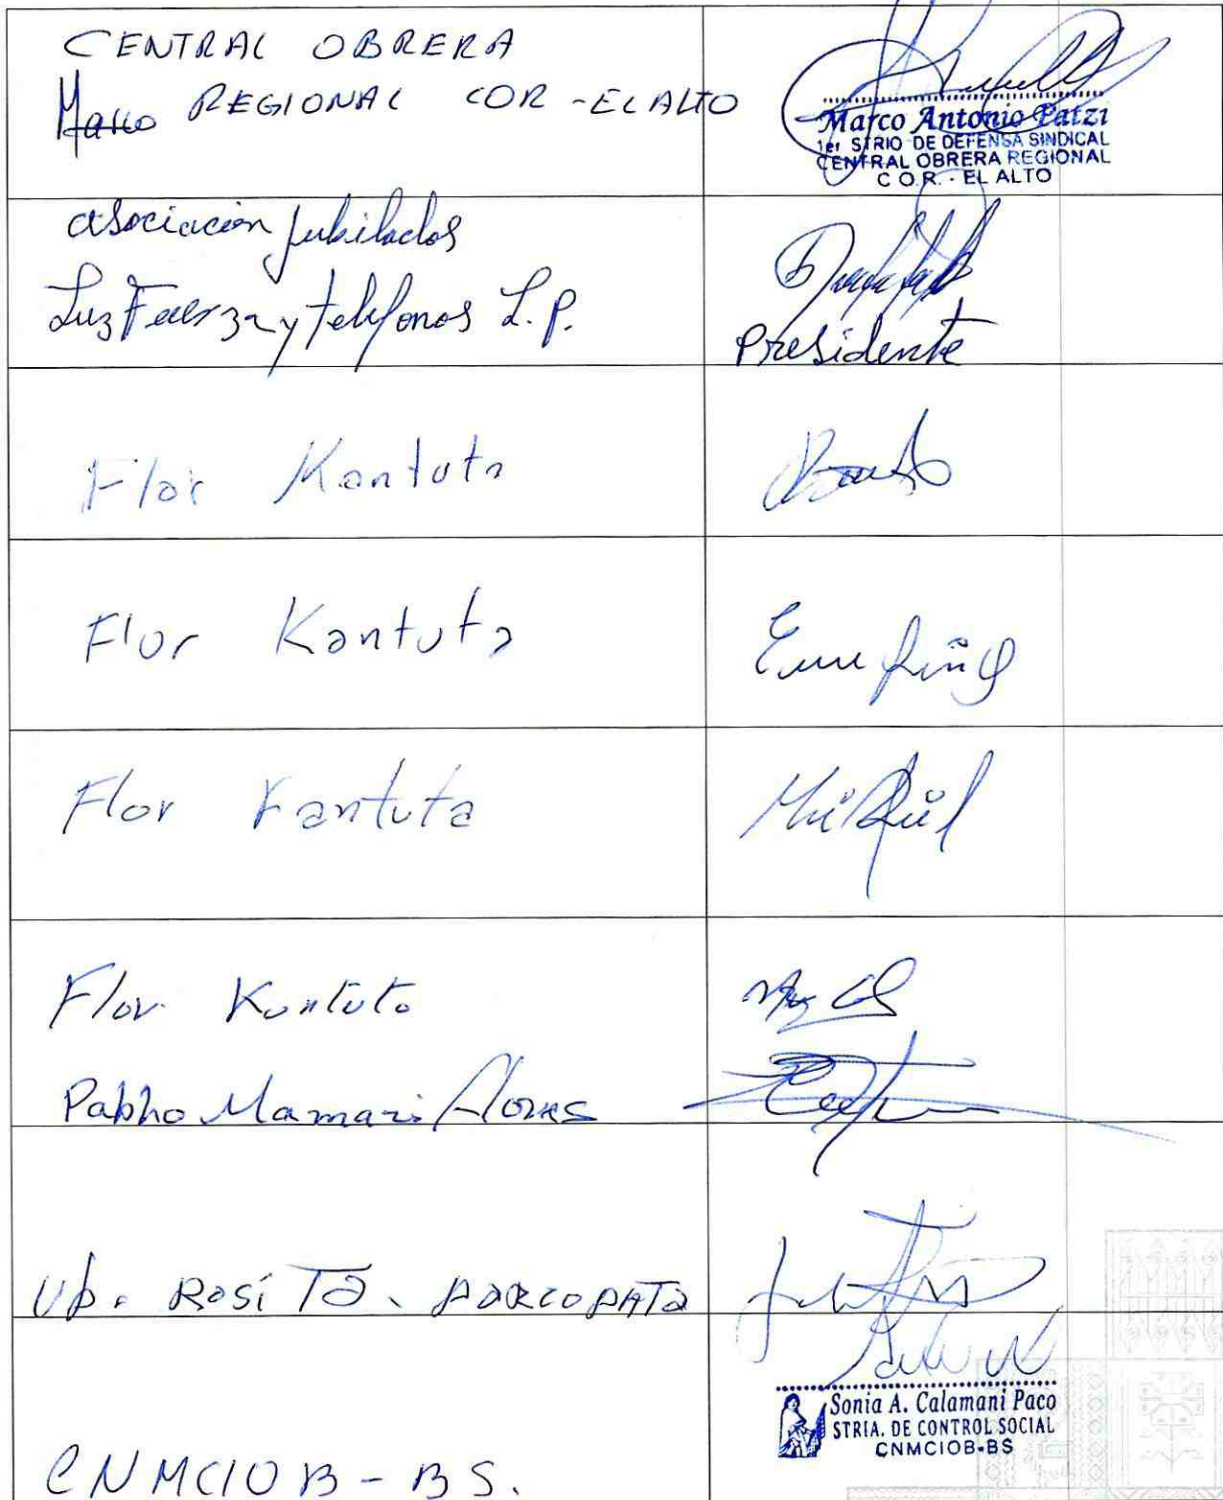 CENTRAL OBRERA
Marco REGIONAL COR - EL ALTO
Marco Antonio Patzi
1er STRIO DE DEFENSA SINDICAL
CENTRAL OBRERA REGIONAL
C.O.R. - EL ALTO
asociación jubilados
Luz Fuerza y telefonos L.P.
Presidente
Flor Kantuta
Flor Kantuta
Flor Kantuta
Flor Kantuta
Pabho Mamani Flores
Ub. ROSITA. PORCOPATA
CNMCIOB - BS.
Sonia A. Calamani Paco
STRIA. DE CONTROL SOCIAL
CNMCIOB-BS